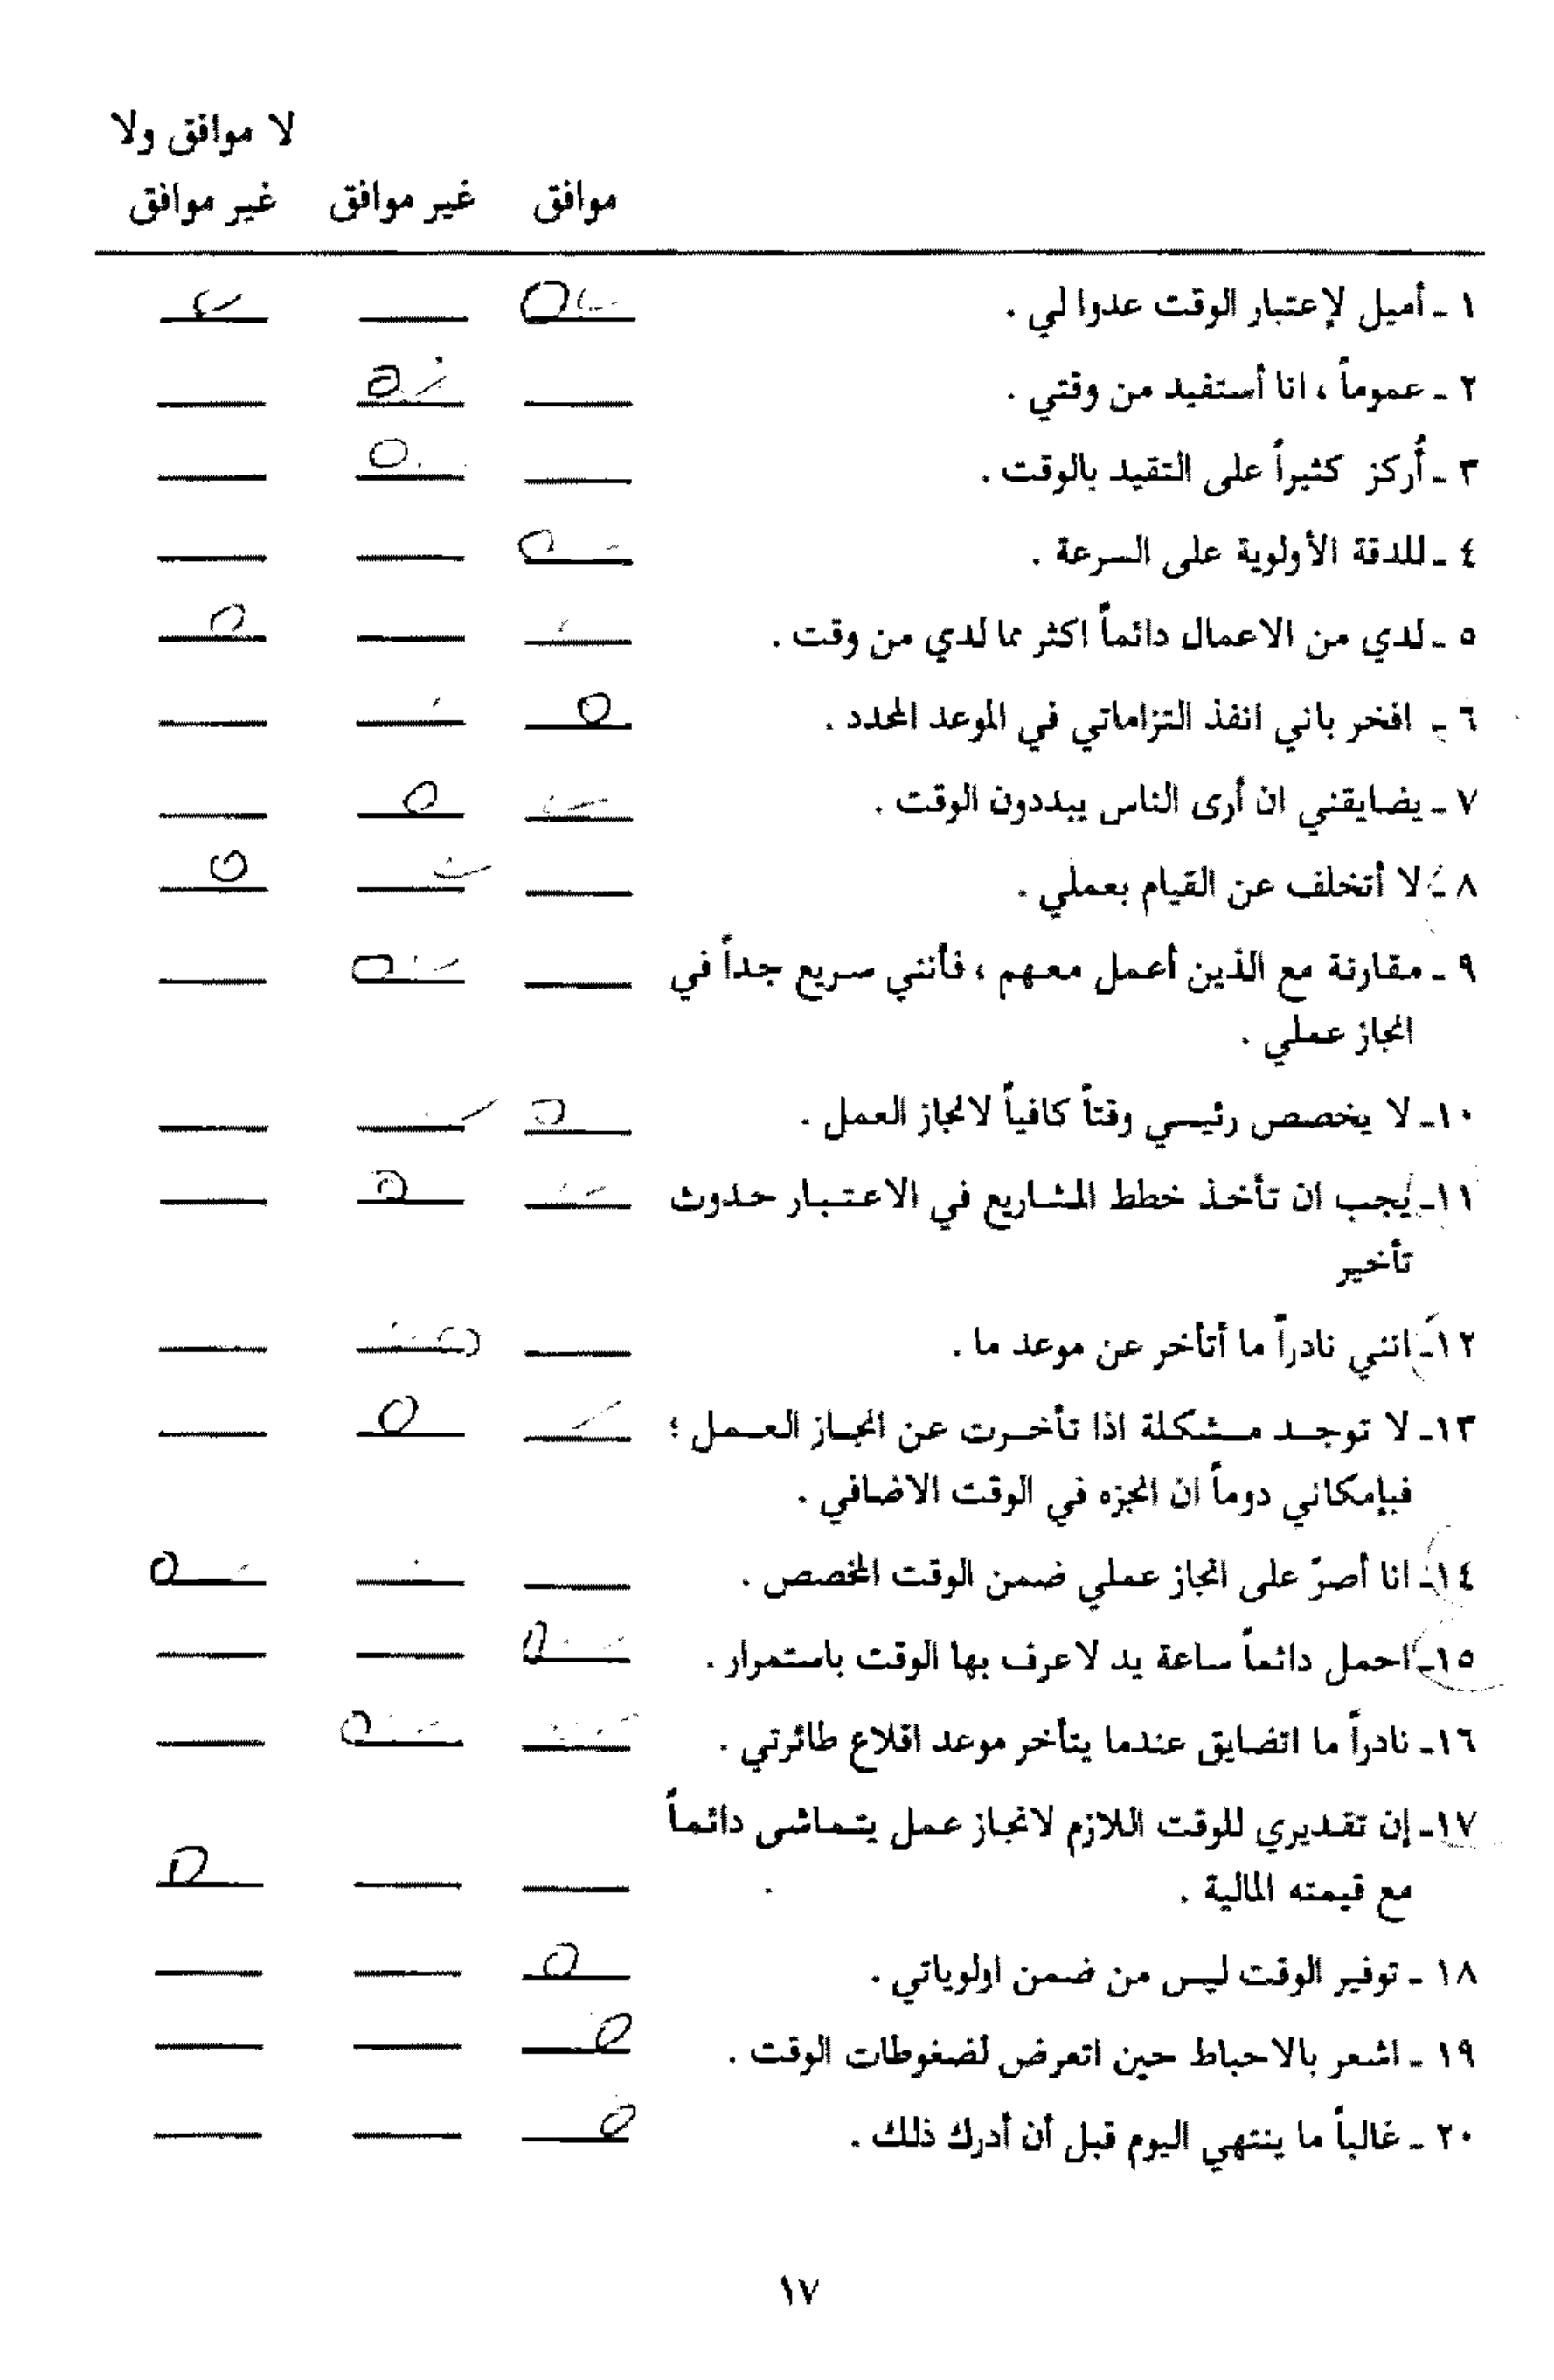 لا موافق ولا
موافق غير موافق غير موافق
١ ـ أميل لإعتبار الوقت عدوا لي .
٢ ـ عموماً ، انا أستفيد من وقتي .
٣ ـ أُركز كثيراً على التقيد بالوقت .
٤ ـ للدقة الأولوية على السرعة .
٥ ـ لدي من الاعمال دائماً اكثر مما لدي من وقت .
٦ ـ افخر باني انفذ التزاماتي في الموعد المحدد .
٧ ـ يضايقني ان أرى الناس يبددون الوقت .
٨ ـ لا أتخلف عن القيام بعملي .
٩ ـ مقارنة مع الذين أعمل معهم ، فأنني سريع جداً في
انجاز عملي .
١٠ـ لا يخصص رئيسي وقتاً كافياً لانجاز العمل .
١١ـ يجب ان تأخذ خطط المشاريع في الاعتبار حدوث
تأخير
١٢ـ انني نادراً ما أتأخر عن موعد ما .
١٣ـ لا توجد مشكلة اذا تأخرت عن انجاز العمل ؛
فبإمكاني دوماً ان انجزه في الوقت الاضافي .
١٤ـ انا أصرّ على انجاز عملي ضمن الوقت المخصص .
١٥ـ احمل دائماً ساعة يد لاعرف بها الوقت باستمرار .
١٦ـ نادراً ما اتضايق عندما يتأخر موعد اقلاع طائرتي .
١٧ـ إن تقديري للوقت اللازم لانجاز عمل يتماشى دائماً
مع قيمته المالية .
١٨ ـ توفير الوقت ليس من ضمن اولوياتي .
١٩ ـ اشعر بالاحباط حين اتعرض لضغوطات الوقت .
٢٠ ـ غالباً ما ينتهي اليوم قبل أن أدرك ذلك .
١٧